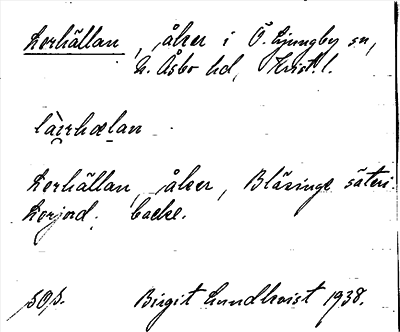 Lerhällan, åker i Ö. Ljungby sn,
N. Åsbo hd, Krist. l.
làɪrhælan
Lerhällan, åker, Bläsinge säteri.
Lerjord, backe.
sOp. Birgit Lundkvist 1938.